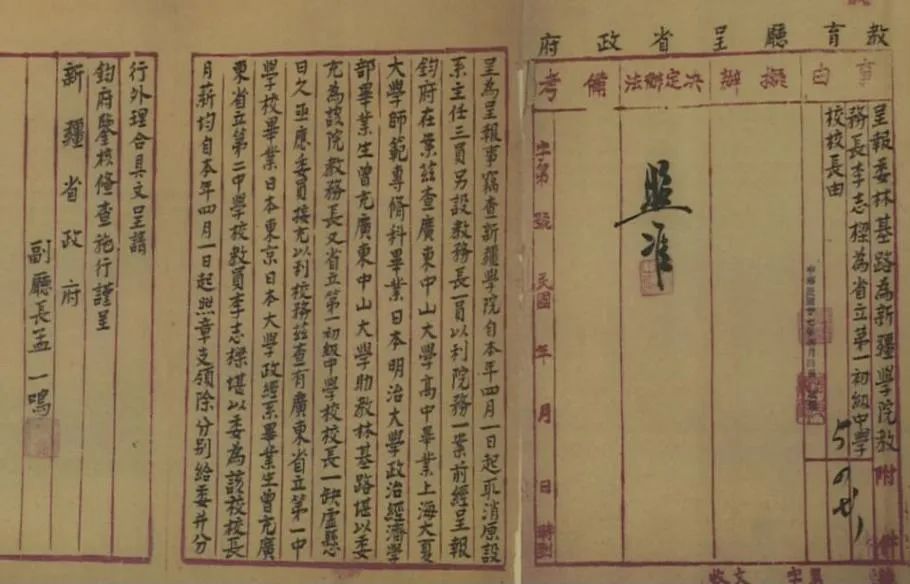 教育廳呈省政府
事由
擬辦
決定辦法
備考
呈報委林基路為新疆學院教
務長李志樑為省立第一初級中學
校校長由
附件
照准
字第 號 民國 年 月 日 時到
呈為呈報事竊查新疆學院自本年四月一日起取消原設
系主任三員另設教務長一員以利院務一案前經呈報
鈞府在案茲查廣東中山大學高中畢業上海大夏
大學師範專脩科畢業日本明治大學政治經濟學
部畢業生曾充廣東中山大學助教林基路堪以委
充為該院教務長又省立第一初級中學校校長一缺虛懸
日久亟應委員接充以利校務茲查有廣東省立第一中
學校畢業日本東京日本大學政經系畢業生曾充廣
東省立第二中學校教員李志樑堪以委為該校校長
月薪均自本年四月一日起照章支領除分別給委并分
行外理合具文呈請
鈞府鑒核俻查施行謹呈
新疆省政府
副廳長孟一鳴